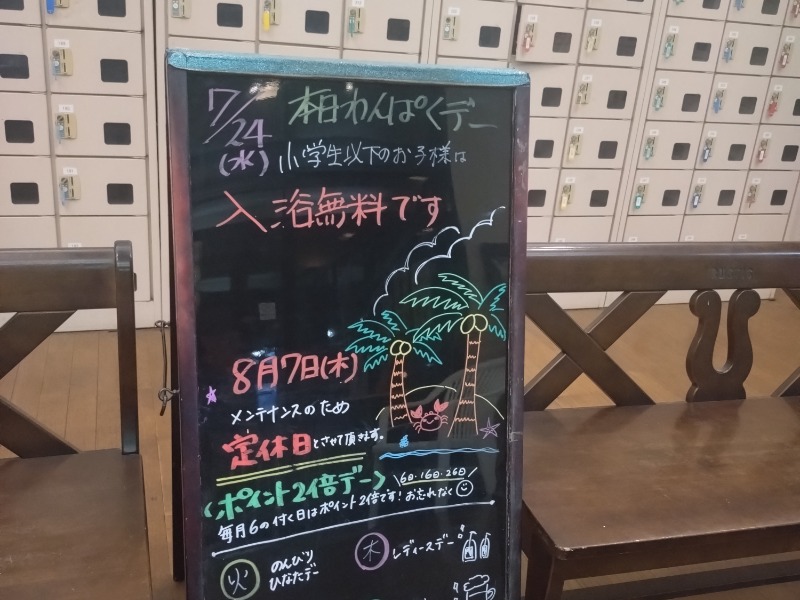 7/24
(水)
本日わんぱくデー
小学生以下のお子様は
入浴無料です
8月7日(木)
メンテナンスのため
定休日とさせて頂きます。
＜ポイント2倍デー＞ \6日・16日・26日/
毎月6の付く日はポイント2倍です！お忘れなく
火 のんびり
ひなたデー
木 レディースデー